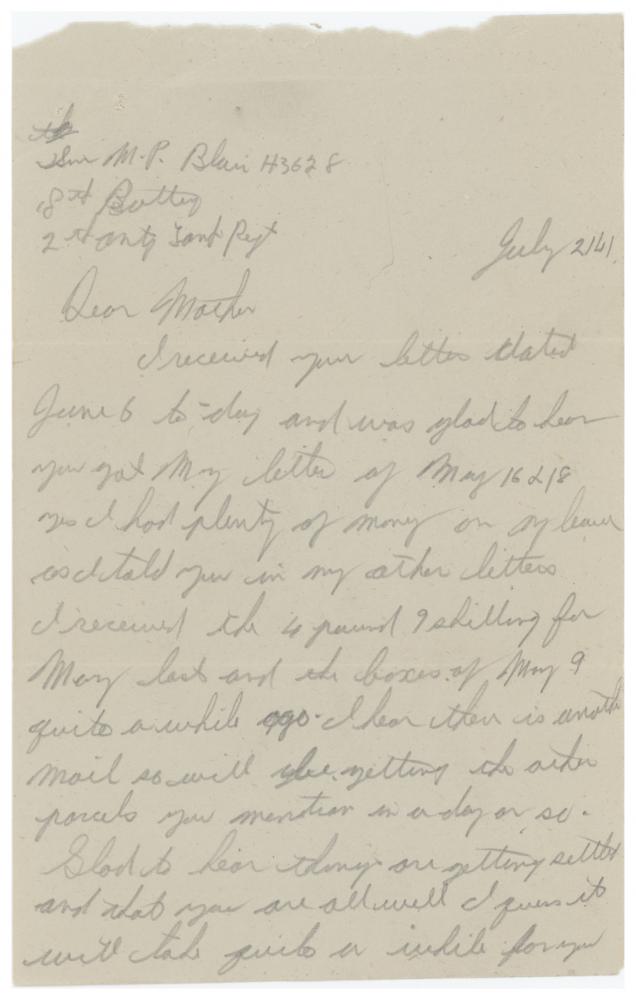 Gnr M.P. Blair H3628
8th Battery
2nd Anty Tank Regt
July 2/41
Dear Mother
I received your letter dated
June 6 to-day and was glad to hear
you got My letter of May 16 & 18
yes I had plenty of money on my leave
as I told you in my other letters
I received the 4 pound 9 shilling for
May last and the boxes of May 9
quite a while ago. I hear there is another
Mail so will be getting the other
parcels you mention in a day or so.
Glad to hear things are getting settled
and that you are all well I guess it
will take quite a while for you